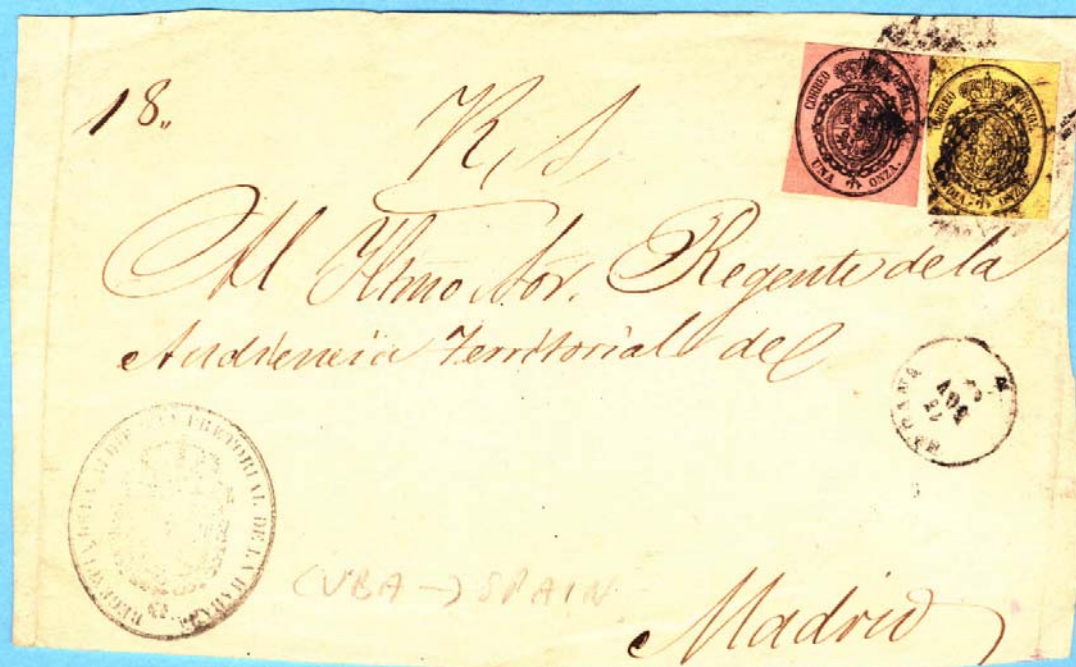 18"
R, S,
CORREO OFICIAL
UNA ONZA.
CORREO OFICIAL
ONZA
Al Iltmo Sor. Regente de la
Audiencia Territorial de
HABANA
NOV
REGENCIA DE LA AUDIENCIA PRETORIAL DE LA HABANA
CUBA → SPAIN
Madrid